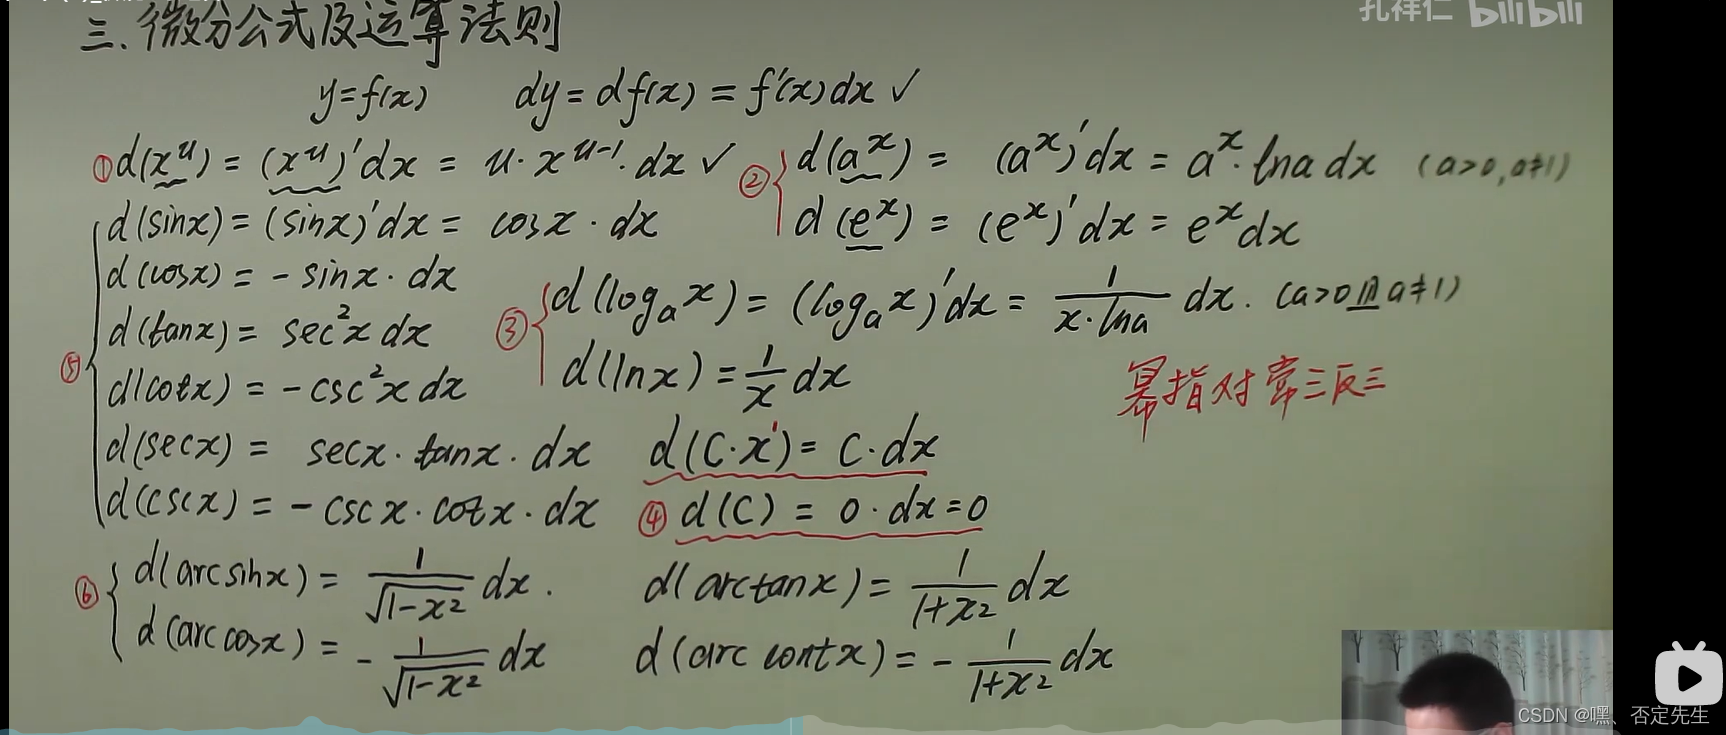 三.微分公式及运算法则
孔祥仁 bilibili
y=f(x) dy=df(x)=f'(x)dx ✓
①d(x^u)=(x^u)'dx=u·x^{u-1}·dx ✓
②d(a^x)=(a^x)'dx=a^x·lna dx (a>0,a≠1)
d(e^x)=(e^x)'dx=e^x dx
⑤d(sinx)=(sinx)'dx=cosx·dx
d(cosx)=-sinx·dx
d(tanx)=sec²x dx
d(cotx)=-csc²x dx
d(secx)=secx·tanx·dx
d(cscx)=-cscx·cotx·dx
③d(log_a x)=(log_a x)'dx=\frac{1}{x·lna}dx.(a>0且a≠1)
d(lnx)=\frac{1}{x}dx
幂指对常三反三
d(C·x')=C·dx
④d(C)=0·dx=0
⑥d(arcsinx)=\frac{1}{\sqrt{1-x²}}dx.
d(arccosx)=-\frac{1}{\sqrt{1-x²}}dx
d(arctanx)=\frac{1}{1+x²}dx
d(arc contx)=-\frac{1}{1+x²}dx
CSDN @嘿、否定先生